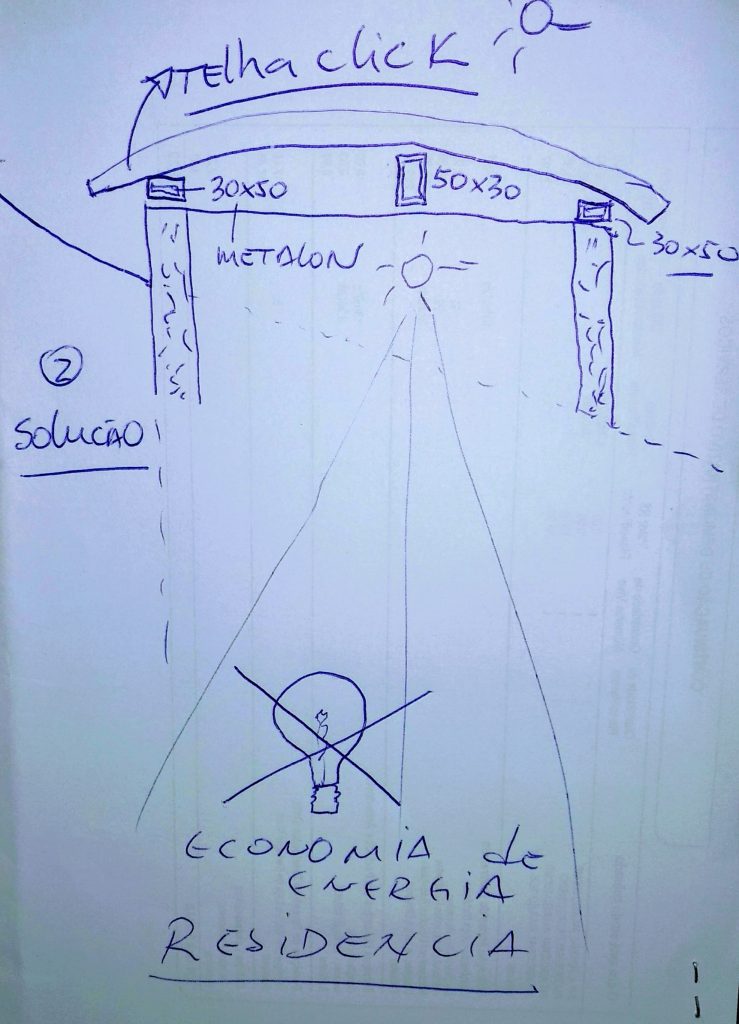 Telha click
30x50
50x30
METALON
30x50
2
SOLUCÃO
ECONOMIA de
ENERGIA
RESIDENCIA